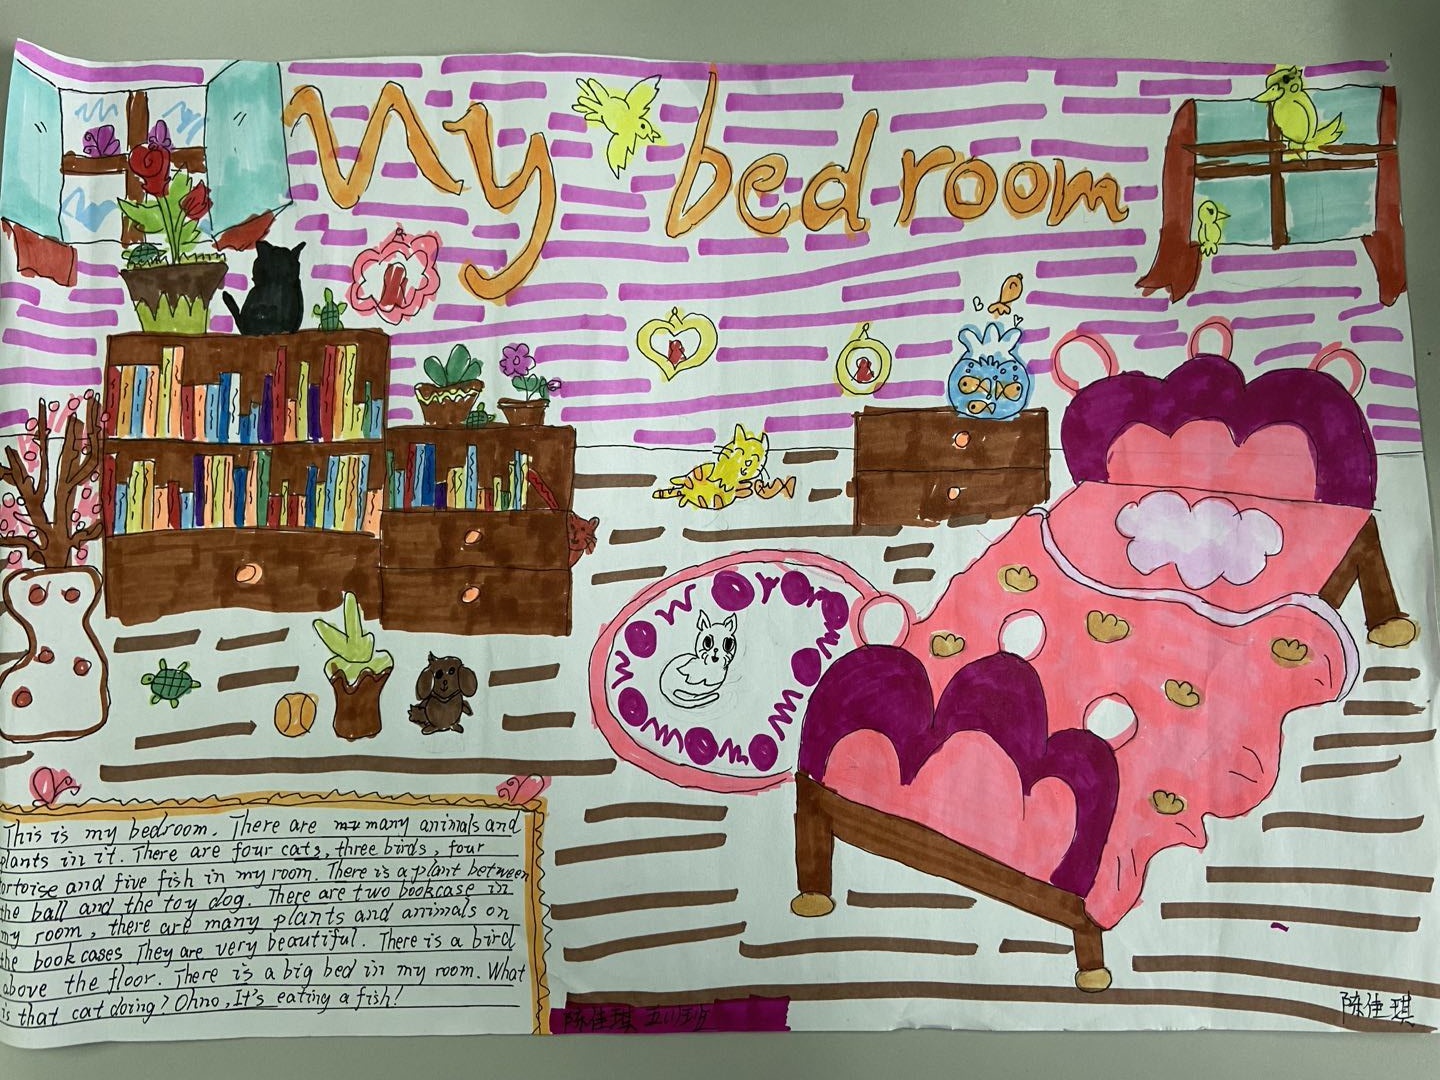 My bedroom
This is my bedroom. There are many animals and
plants in it. There are four cats, three birds, four
tortoise and five fish in my room. There is a plant between
the ball and the toy dog. There are two bookcase in
my room, there are many plants and animals on
the bookcases They are very beautiful. There is a bird
above the floor. There is a big bed in my room. What
is that cat doing? Ohno, It's eating a fish!
陈佳琪
陈佳琪